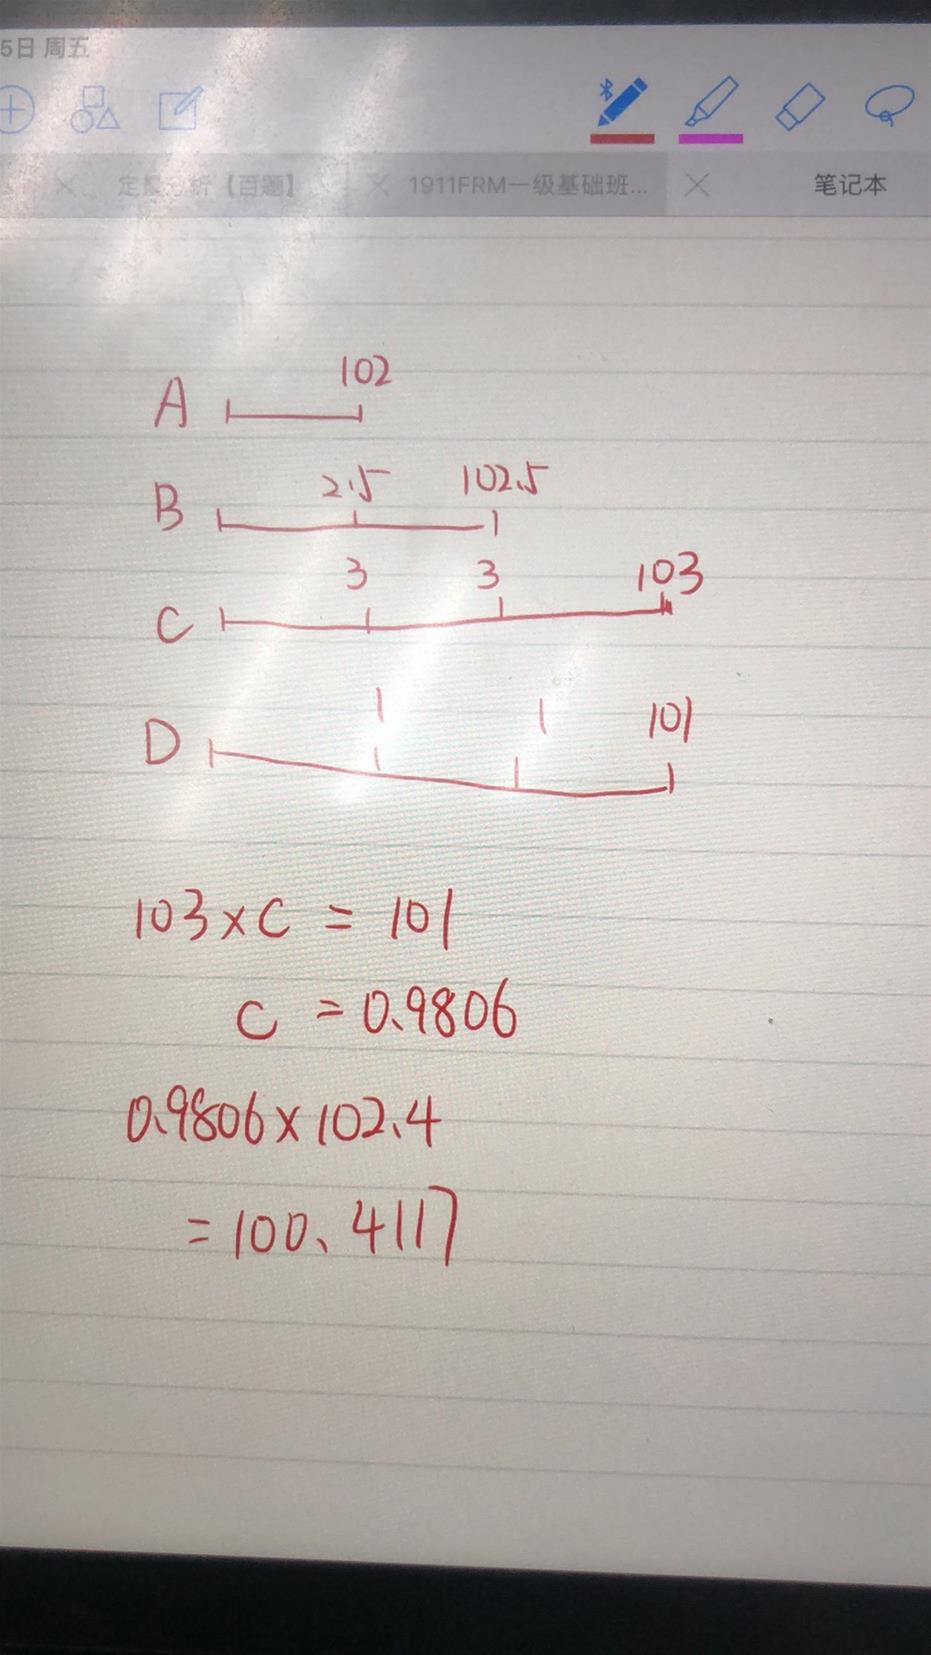 5日 周五
定量 析【百题】 1911FRM一级基础班... 笔记本
102
A
2.5 102.5
B
3 3 103
C
1 1 101
D
103×C = 101
C = 0.9806
0.9806×102.4
=100.4117